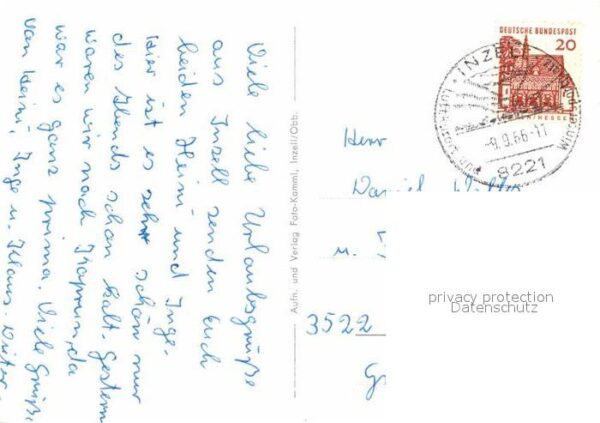 Viele liebe Urlaubsgrüße
aus Inzell senden Euch
beiden Heini und Inge.
Hier ist es sehr schön nur
des Abends schon kalt. Gestern
waren wir nach Kaprun, da
war es ganz prima. Viele Grüße
von Heini, Inge u. Klaus-Dieter
Aufn. und Verlag Foto-Kamml, Inzell/Obb.
DEUTSCHE BUNDESPOST
20
INZELL
-9.9.66-17
8221
Herr
Daniel
u.
3522
privacy protection
Datenschutz